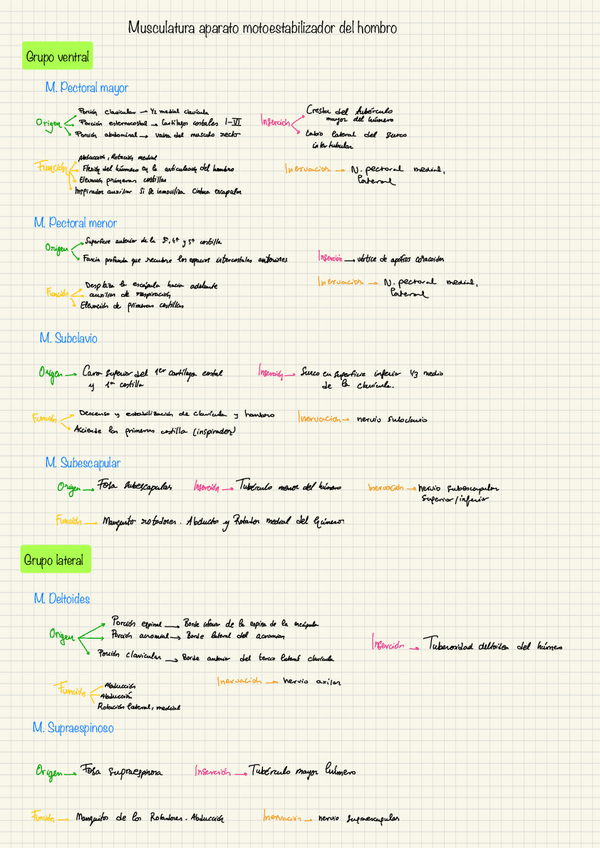 Musculatura aparato motoestabilizador del hombro
Grupo ventral
M. Pectoral mayor
Origen
Porción clavicular → ½ medial clavícula
Porción esternocostal → Cartílagos costales I-VI
Porción abdominal → vaina del musculo recto
Inserción
Cresta del tubérculo mayor del húmero
Labio lateral del surco intertubular
Función
Abducción, Rotación medial
Flexión del húmero en la articulación del hombro
Elevación primeras costillas
Inspirador auxiliar si se inmoviliza cintura escapular
Inervación → N. pectoral medial, lateral
M. Pectoral menor
Origen
Superficie anterior de la 3ª, 4ª y 5ª costilla
Fascia profunda que recubre los espacios intercostales anteriores
Inserción → vértice de apófisis coracoides
Función
Desplaza la escápula hacia adelante
auxiliar de respiración
Elevación de primeras costillas
Inervación → N. pectoral medial, lateral
M. Subclavio
Origen → Cara superior del 1er cartílago costal y 1ª costilla
Inserción → Surco en superficie inferior 1/3 medio de la clavícula.
Función
Descenso y estabilización de clavícula y hombro
Asciende la primera costilla (inspirador)
Inervación → nervio subclavio
M. Subescapular
Origen → Fosa subescapular
Inserción → Tubérculo menor del húmero
Inervación → nervio subescapular superior/inferior
Función → Manguito rotadores. Abductor y Rotador medial del húmero
Grupo lateral
M. Deltoides
Origen
Porción espinal → Borde inferior de la espina de la escápula
Porción acromial → Borde lateral del acromion
Porción clavicular → Borde anterior del tercio lateral clavícula
Inserción → Tuberosidad deltoidea del húmero
Función
Abducción
Abducción
Rotación lateral, medial
Inervación → nervio axilar
M. Supraespinoso
Origen → Fosa supraespinosa
Inserción → Tubérculo mayor húmero
Función → Manguito de los Rotadores. Abducción
Inervación → nervio supraescapular